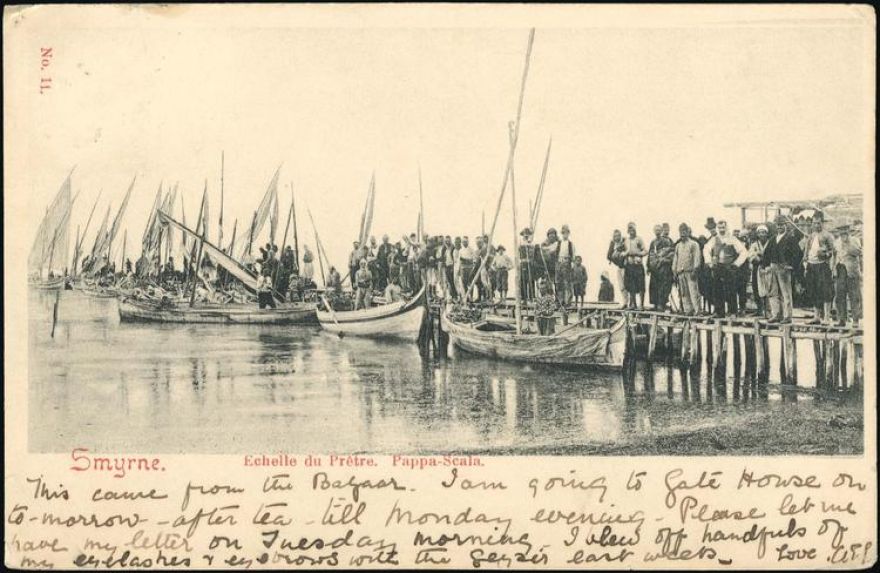 No. 11.
Smyrne.
Echelle du Prêtre. Pappa-Scala.
This came from the Bazaar. I am going to Gate House on
to-morrow - after tea - till Monday evening - Please let me
have my letter on Tuesday morning. I blew off handfuls of
my eyelashes & eyebrows with the Geyser last week - Love.